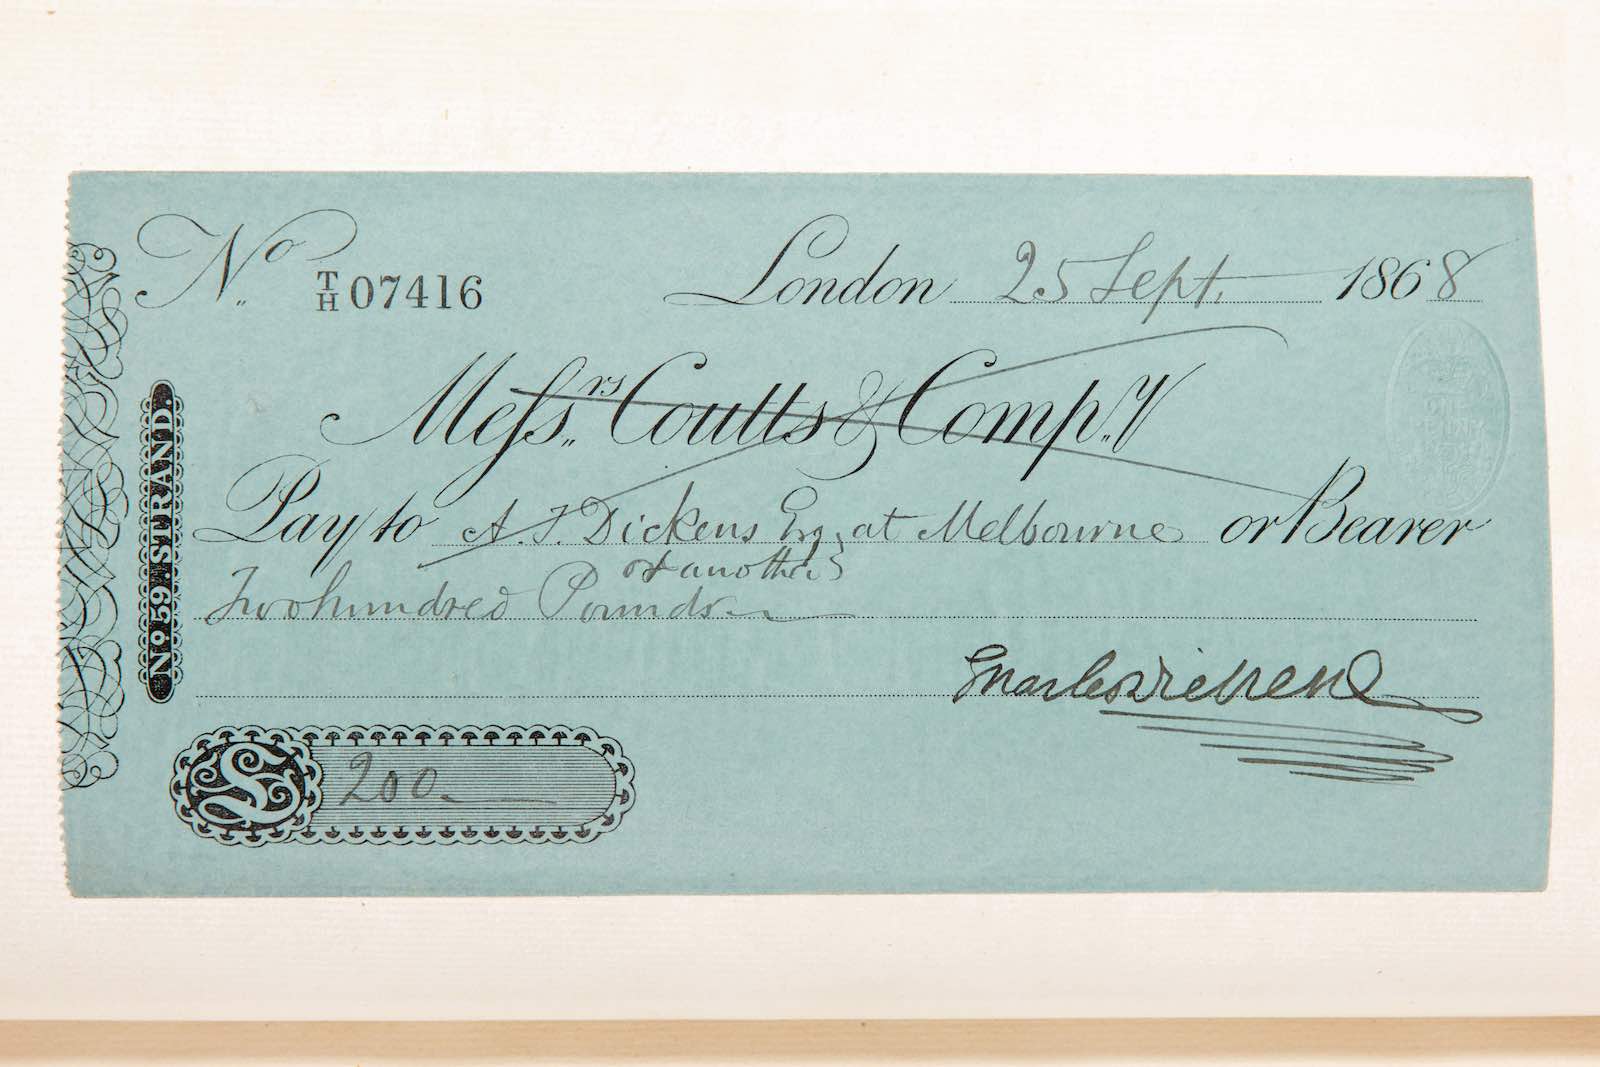 No. T/H 07416
London 25 Sept. 1868
Messrs. Coutts & Compy.
Pay to A. T. Dickens Esq, at Melbourne or Bearer
& another
Two hundred Pounds
Charles Dickens
£ 200
No 59. STRAND.